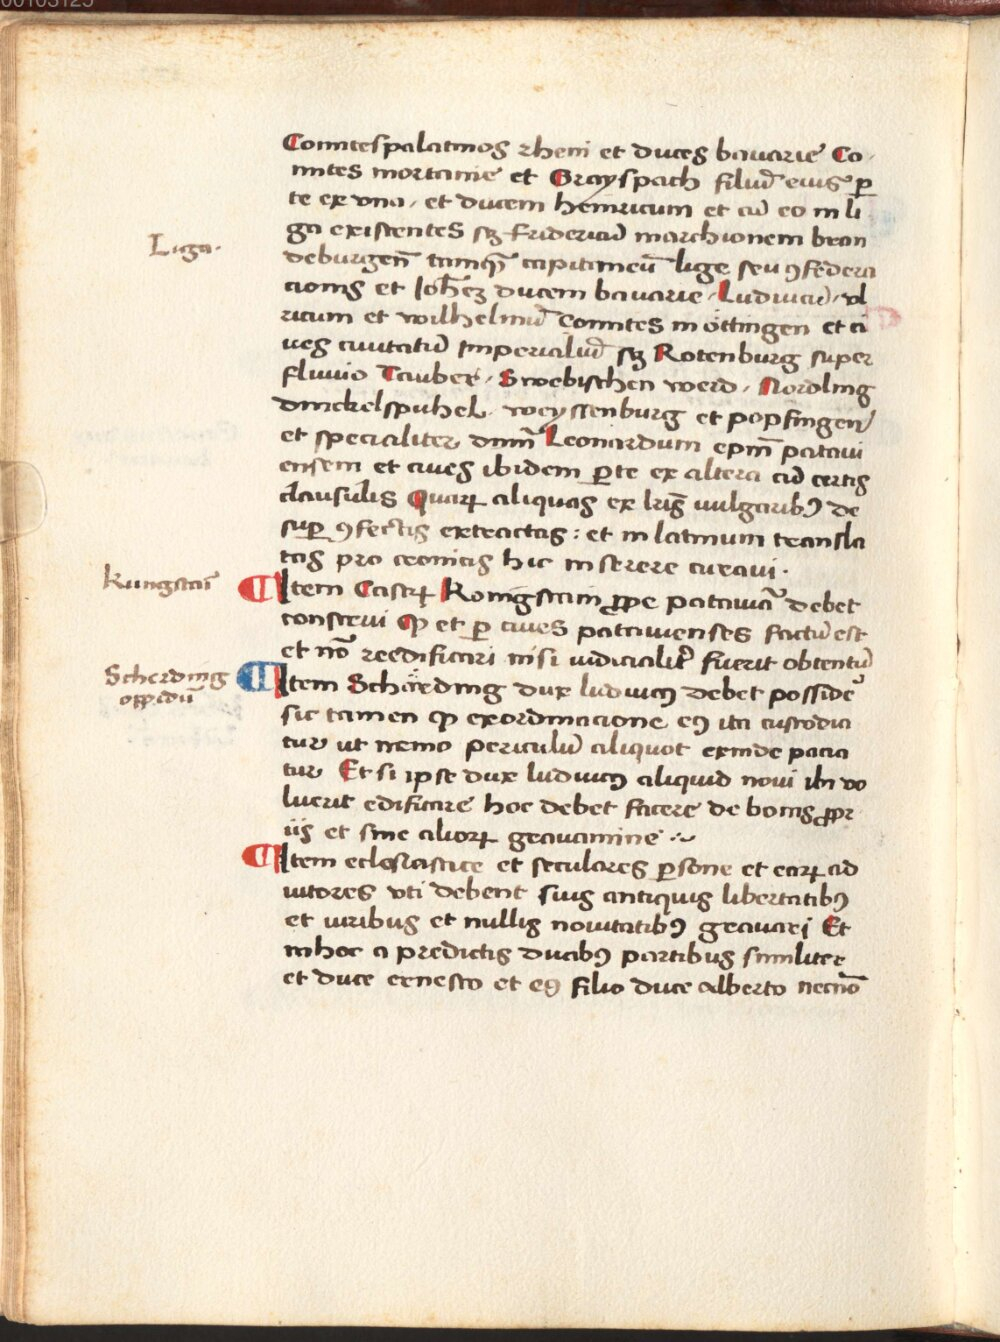 00103125
Comitespalatinos rheni et duces bavarie Co
mites mortanie et Grayspach filiū eius ꝑ
te ex una, et ducem heinricum et cū eo in li
Liga.
ga existentes sꝫ fridericū marchionem bran
deburgeñ tamqͣ capitaneū lige seu ꝯfedera
cionis et Joh̄eꝫ ducem bavarie, Ludwicū, vl
ricum et wilhelmū Comites in ottingen et ci
ves civitatū Imperialiū sꝫ Rotenburg super
fluvio Tauber, Swebischen werd, Nordling
dinckelspuhel, weyssenburg et popfingen
et specialiter dnm̄ Leonardum ep̄m patavi
ensem et cives ibidem ꝑte ex altera cū certis
clausulis Quaꝝ aliquas ex lr̄is vulgaribꝰ de
suꝑ ꝯfectis extractas: et in latinum transla
tas pro cronicis hic inserere curavi.
Kungstaī
Item Castꝝ Konigstain ꝓpe pataviā debet
construi Qꝫ et ꝑ cives patavienses factū est
et nō reedificari nisi iudicialit̄ fuerit obtentū
Scherding
oppidū
Item Scharding dux ludwicꝰ debet posside᷑
sic tamen ꝙ ex ordinacione eꝰ ita custodia
tur ut nemo periculū aliquot exinde pacia
tur Et si ipse dux ludwicꝰ aliquid novi ibi vo
luerit edificare hoc debet facere de bonis ꝓpr
iis et sine alioꝝ gravamine
Item ecclesiastice et seculares ꝑsone et eaꝝ ad
iutores uti debent suis antiquis libertatibꝰ
et iuribus et nullis novitatibꝰ gravari Et
in hoc a predictis ducibꝰ partibus similiter
et duce ernesto et eꝰ filio duce alberto necnō